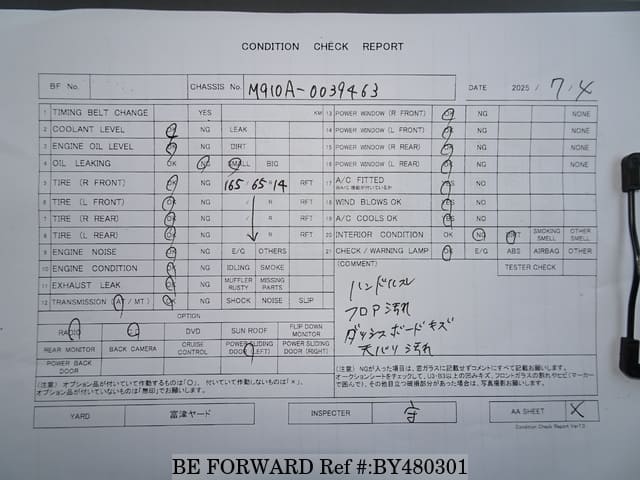 CONDITION CHECK REPORT
BF No. CHASSIS No. M910A-0039463 DATE 2025 / 7 / 4
1 TIMING BELT CHANGE YES KM
2 COOLANT LEVEL OK NG LEAK
3 ENGINE OIL LEVEL OK NG DIRT
4 OIL LEAKING OK NG SMALL BIG
5 TIRE (R FRONT) OK NG 165 / 65 R 14 RFT
6 TIRE (L FRONT) OK NG / R RFT
7 TIRE (R REAR) OK NG / R RFT
8 TIRE (L REAR) OK NG / R RFT
9 ENGINE NOISE OK NG E/G OTHERS
10 ENGINE CONDITION OK NG IDLING SMOKE
11 EXHAUST LEAK OK NG MUFFLER RUSTY MISSING PARTS
12 TRANSMISSION (A / MT) OK NG SHOCK NOISE SLIP
13 POWER WINDOW (R FRONT) OK NG NONE
14 POWER WINDOW (L FRONT) OK NG NONE
15 POWER WINDOW (R REAR) OK NG NONE
16 POWER WINDOW (L REAR) OK NG NONE
17 A/C FITTED YES NO
18 WIND BLOWS OK YES NO
19 A/C COOLS OK YES NO
20 INTERIOR CONDITION OK NG DIRT SMOKING SMELL OTHER SMELL
21 CHECK / WARNING LAMP OK E/G ABS AIRBAG OTHER
(COMMENT) TESTER CHECK
フロア汚れ
ダッシュボードキズ
天バリ汚れ
OPTION
RADIO CD DVD SUN ROOF FLIP DOWN MONITOR
REAR MONITOR BACK CAMERA CRUISE CONTROL POWER SLIDING DOOR (LEFT) POWER SLIDING DOOR (RIGHT)
POWER BACK DOOR
(注意) オプション品が付いていて作動するものは「○」、付いていて作動しないものは「×」、
オプション品が付いていないものは「無印」でお願いします。
(注意) NGが入った項目は、窓ガラスに記載せずコメントにすべて記載お願いします。
オークションシートをチェックして、U3・B3以上の凹みキズ、フロントガラスの割れやヒビ(マーカーで囲んで)、その他目立つ破損部分があった場合は、写真撮影お願いします。
YARD 富津ヤード INSPECTER 守 AA SHEET X
Condition Check Report Ver7.0
BE FORWARD Ref #:BY480301